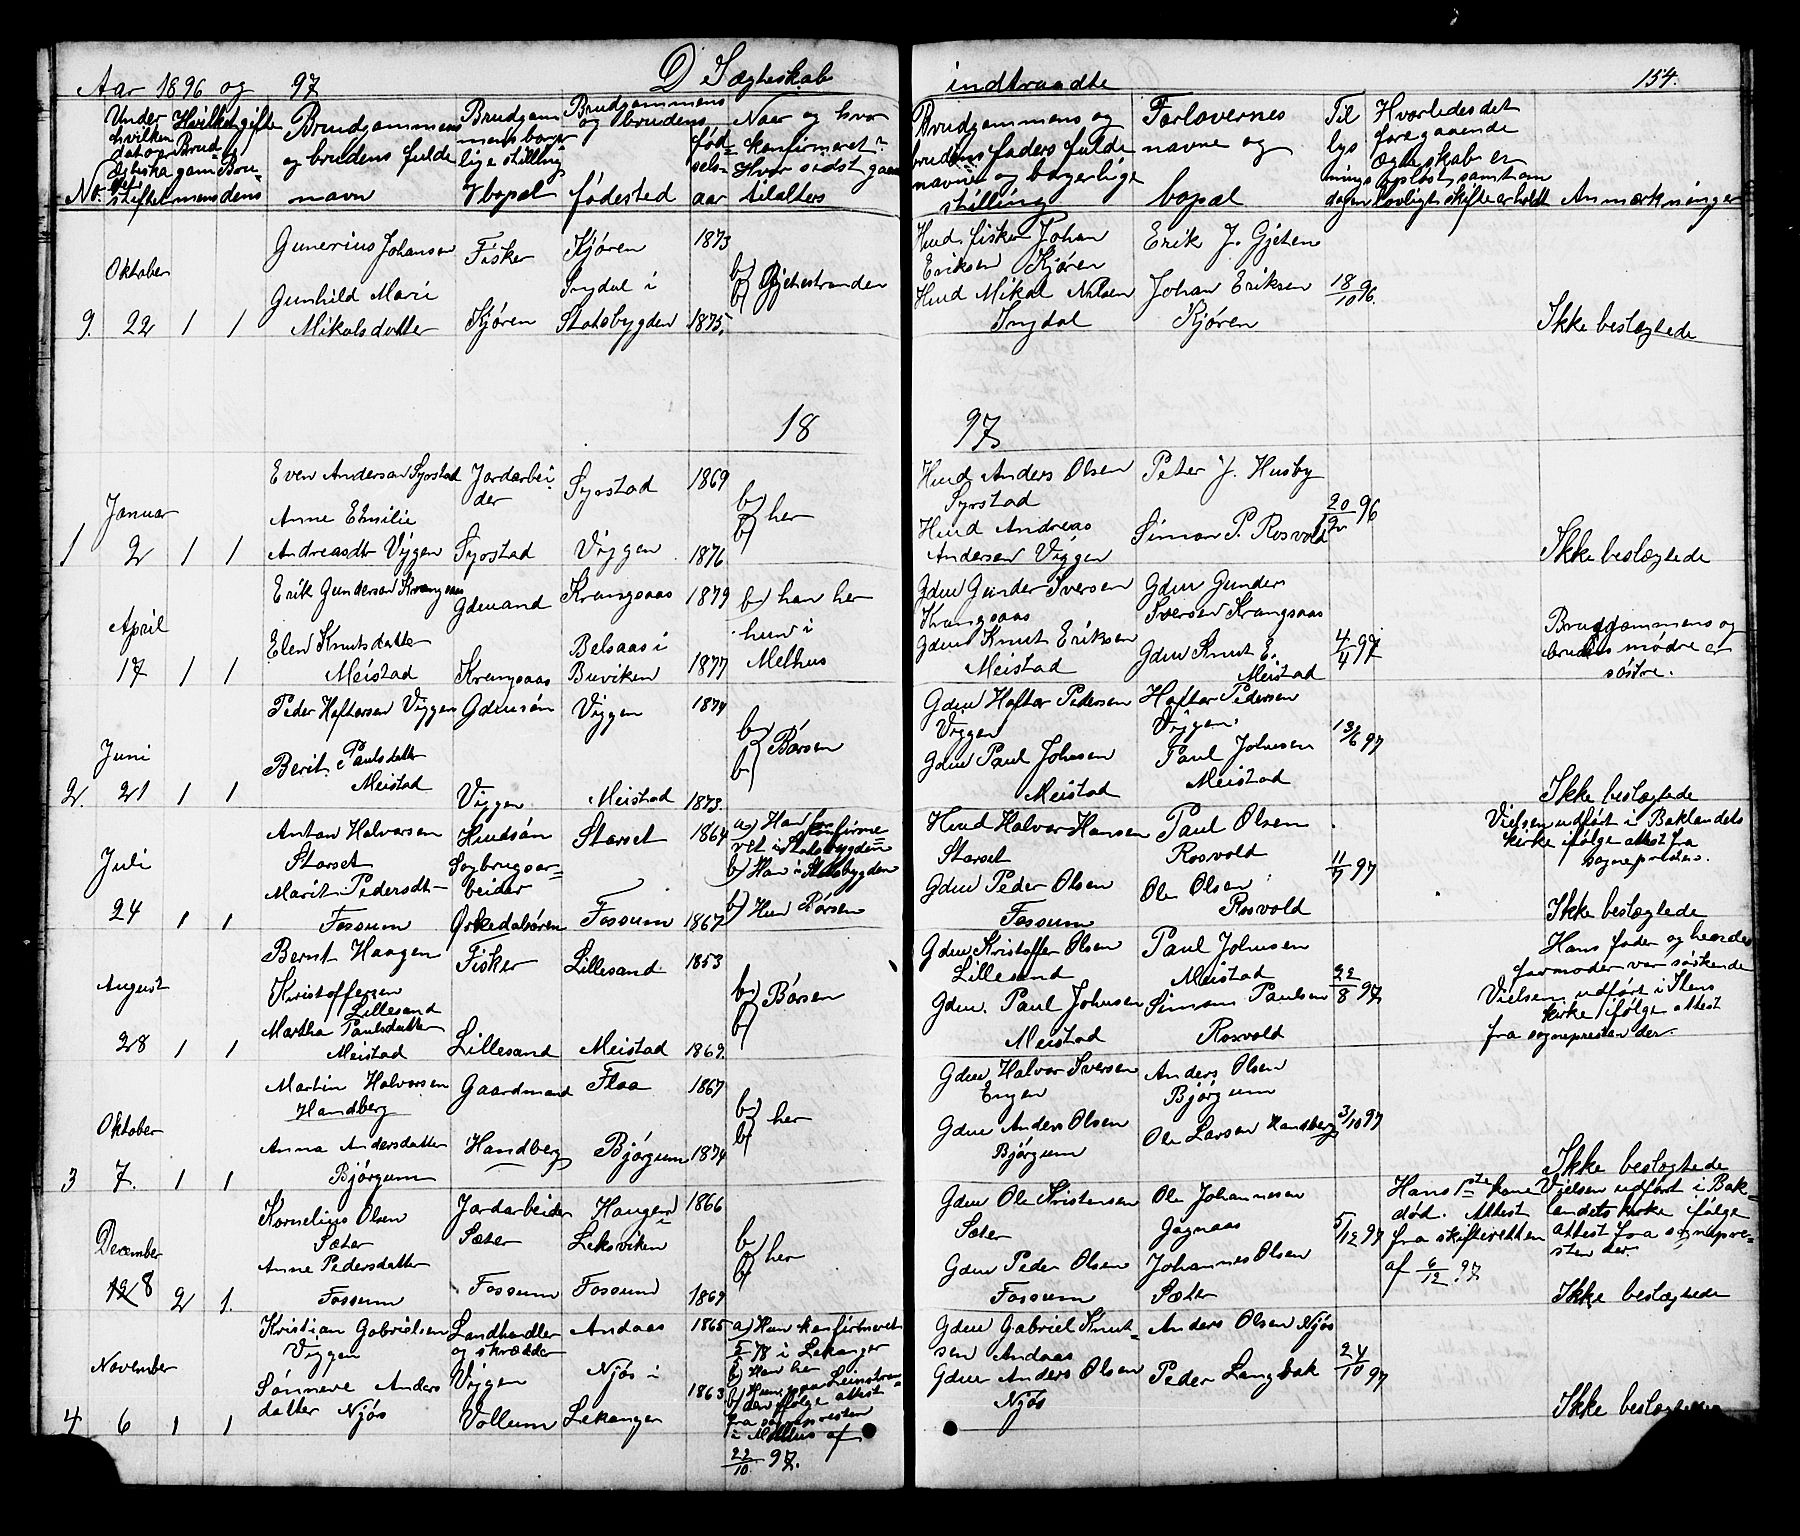 Aar 1896 og 97 D Ægteskab indtraadte 154.
No. Under hvilken dato Ægteska bet stiftet
Hvilket gifte Brud gam mens Bru dens
Brudgammens og brudens fulde navn
Brudgam mens borger lige stilling & bopæl
Brudgammens og brudens fødested
fød sels aar
Naar og hvor konfirmeret? Hvor sidst gaaet tilalters
Brudgammens og brudens faders fulde navne og borgerlige stilling
Forlovernes navne og bopæl
Til lys nings dagen
Hvorledes det foregaaende ægteskab er opløst, samt om lovligt skifte er holdt
Anmærkninger
9. Oktober 22 1 1
Gunerius Johansen
Gunhild Marie
Mikalsdatter
Fisker
Kjøren
Kjøren
Ingdal i
Stadsbygden
1873
1875.
b) Gjetestranden
Husmd. fisker Johan
Eriksen Kjøren
Husmd Mikal Nilsen
Ingdal
Erik J. Gjeten
Johan Eriksen
Kjøren
18/10 96.
Ikke beslægtede
18 97
1 Januar 2 1 1
Even Andersen Syrstad
Anne Emilie
Andreasdtr Viggen
Jordarbei
der
Syrstad
Syrstad
Viggen
1869
1876
b) her
Husmd Anders Olsen
Syrstad
Husmd Andreas
Andersen Viggen
Peter J. Husby
Simon P. Rosvold
20/12 96
Ikke beslægtede
April 17 1 1
Erik Gundersen Krangsaas
Elen Knutsdatter
Meistad
Gdmand
Krangsaas
Krangsaas
Belsaas i
Buviken
1879
1877
b) han her
hun i
Melhus
Gdm Gunder Iversen
Krangsaas
Gdm Knut Eriksen
Meistad
Gdm Gunder
Iversen Krangsaas
Gdm Knut E.
Meistad
4/4 97
Brudgammens og
brudens mødre er
søstre.
2. Juni 21 1 1
Peder Haftorsen Viggen
Berit Paulsdatter
Meistad
Gdmsøn
Viggen
Viggen
Meistad
1874
1873.
b) Børsen
Gdm Haftor Pedersen
Viggen
Gdm Paul Johnsen
Meistad
Haftor Pedersen
Viggen.
Paul Johnsen
Meistad
13/6 97
Ikke beslægtede
Juli 24 1 1
Anton Halvorsen
Storset
Marit Pedersdtr
Fossum
Husmdsøn
Sagbrugsar=
beider
Orkedalsøren
Storset
Fossum
1864
1867
a) Han konfirme
ret i Stadsbygden
b) Han i Stadsbygden
b) Hun Børsen
Husmd Halvor Hansen
Storset
Gdm Peder Olsen
Fossum
Paul Olsen
Rosvold
Ole Olsen
Rosvold
11/7 97
Vielsen udført i Baklandets
kirke ifølge attest fra
sognepresten.
Ikke beslægtede
August 28 1 1
Bernt Haagen
Kristoffersen
Lillesand
Martha Paulsdatter
Meistad
Fisker
Lillesand
Lillesand
Meistad
1853
1869.
b) Børsen
Gdm Kristoffer Olsen
Lillesand
Gdm. Paul Johnsen
Meistad
Paul Johnsen
Meistad
Simon Paulsen
Rosvold
22/8 97
Hans fader og hendes
farmoder var søskende
Vielsen udført i Ilens
kirke ifølge attest
fra sognepresten der.
3 Oktober 7. 1 1
Martin Halvorsen
Handberg
Anna Andersdatter
Bjørgum
Gaardmand
Handberg
Flaa
Bjørgum
1867
1874
b) her
Gdm Halvor Iversen
Engen
Gdm Anders Olsen
Bjørgum
Anders Olsen
Bjørgum
Ole Larsen Handberg
3/10 97
Ikke beslægtede
December 8 2 1.
Kornelius Olsen
Sæter
Anne Pedersdatter
Fossum
Jordarbeider
Sæter
Fossum
Haugen
i
Leksviken
Fossum
1866
1869
b) her
Gdm Ole Kristensen
Sæter
Gdm Peder Olsen
Fossum
Ole Johannesen
Johannes Olsen
Sæter
5/12 97
Hans 1ste kone
død. Attest
fra skifteretten
af 6/12 97
Vielsen udført i Bak=
landets kirke ifølge
attest fra sognepre=
sten der.
Ikke beslægtede
4 November 6 1 1
Kristian Gabrielsen
Viggen
Sønneve Anders
datter Njøs
Landhandler
og skrædder
Viggen
Vollum
Andaas
Njøs i
Lekanger
1865
1863
a) Hun konfirmeret
5/5 78 i Lekanger
b) Han her
b) Hun paa Leinstran=
den ifølge attest
fra sognepresten
i Melhus af
22/10 97.
Gdm Gabriel Knut=
sen Andaas
Gdm Anders Olsen
Njøs
Anders Olsen Njøs
Peder Langbak
24/10 97
Ikke beslægtede